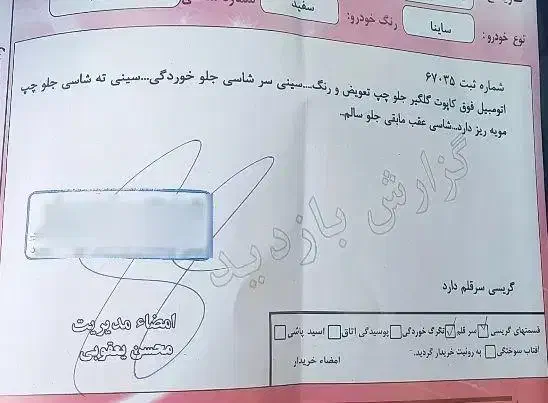 سفید
رنگ خودرو:
ساینا
نوع خودرو:
شماره ثبت ۶۷۰۳۵
اتومبیل فوق کاپوت گلگیر جلو چپ تعویض و رنگ....سینی سر شاسی جلو خوردگی...سینی ته شاسی جلو چپ
مویه ریز دارد...شاسی عقب مابقی جلو سالم..
گزارش بازدید
گریسی سرقلم دارد
امضاء مدیریت
محسن یعقوبی
قسمتهای گریسی سر قلم تگرگ خوردگی پوسیدگی اتاق اسید پاشی
آفتاب سوختگی به رونیت خریدار گردید.
امضاء خریدار